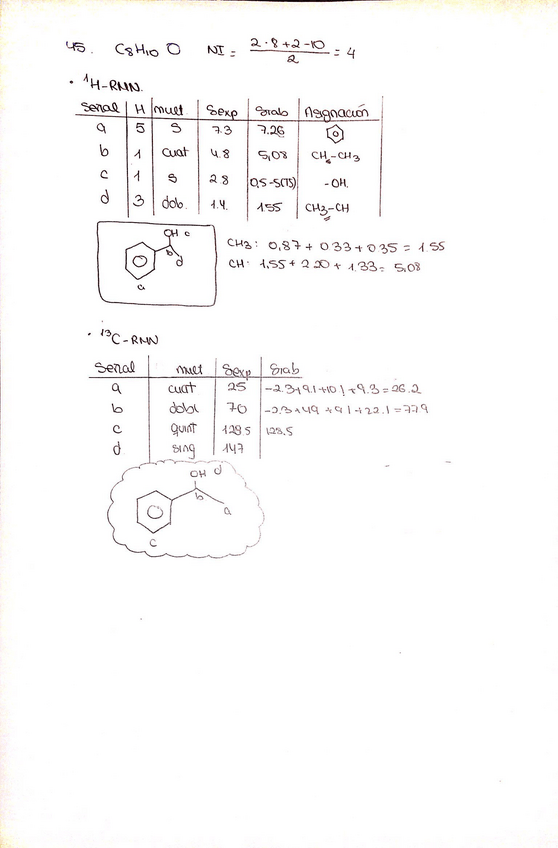 45. C8H10 O NI = 2·8+2-10 / 2 = 4
• ¹H-RMN.
señal H mult δexp δtab Asignación
a 5 s 7.3 7.26
b 1 cuat 4.8 5,08 CH-CH3
c 1 s 2.8 0,5-5(TS) -OH.
d 3 dob. 1.4. 1.55 CH3-CH
OH c
b
d
a
CH3: 0,87 + 0.33 + 0.35 = 1.55
CH: 1,55 + 2.20 + 1.33 = 5,08
• ¹³C-RMN
señal mult δexp δtab
a cuat 25 -2.3+9.1+10.1+9.3=26.2
b dobl 70 -2.3+49+9.1+22.1=77.9
c quint 128.5 128.5
d sing 147
OH d
b
a
c